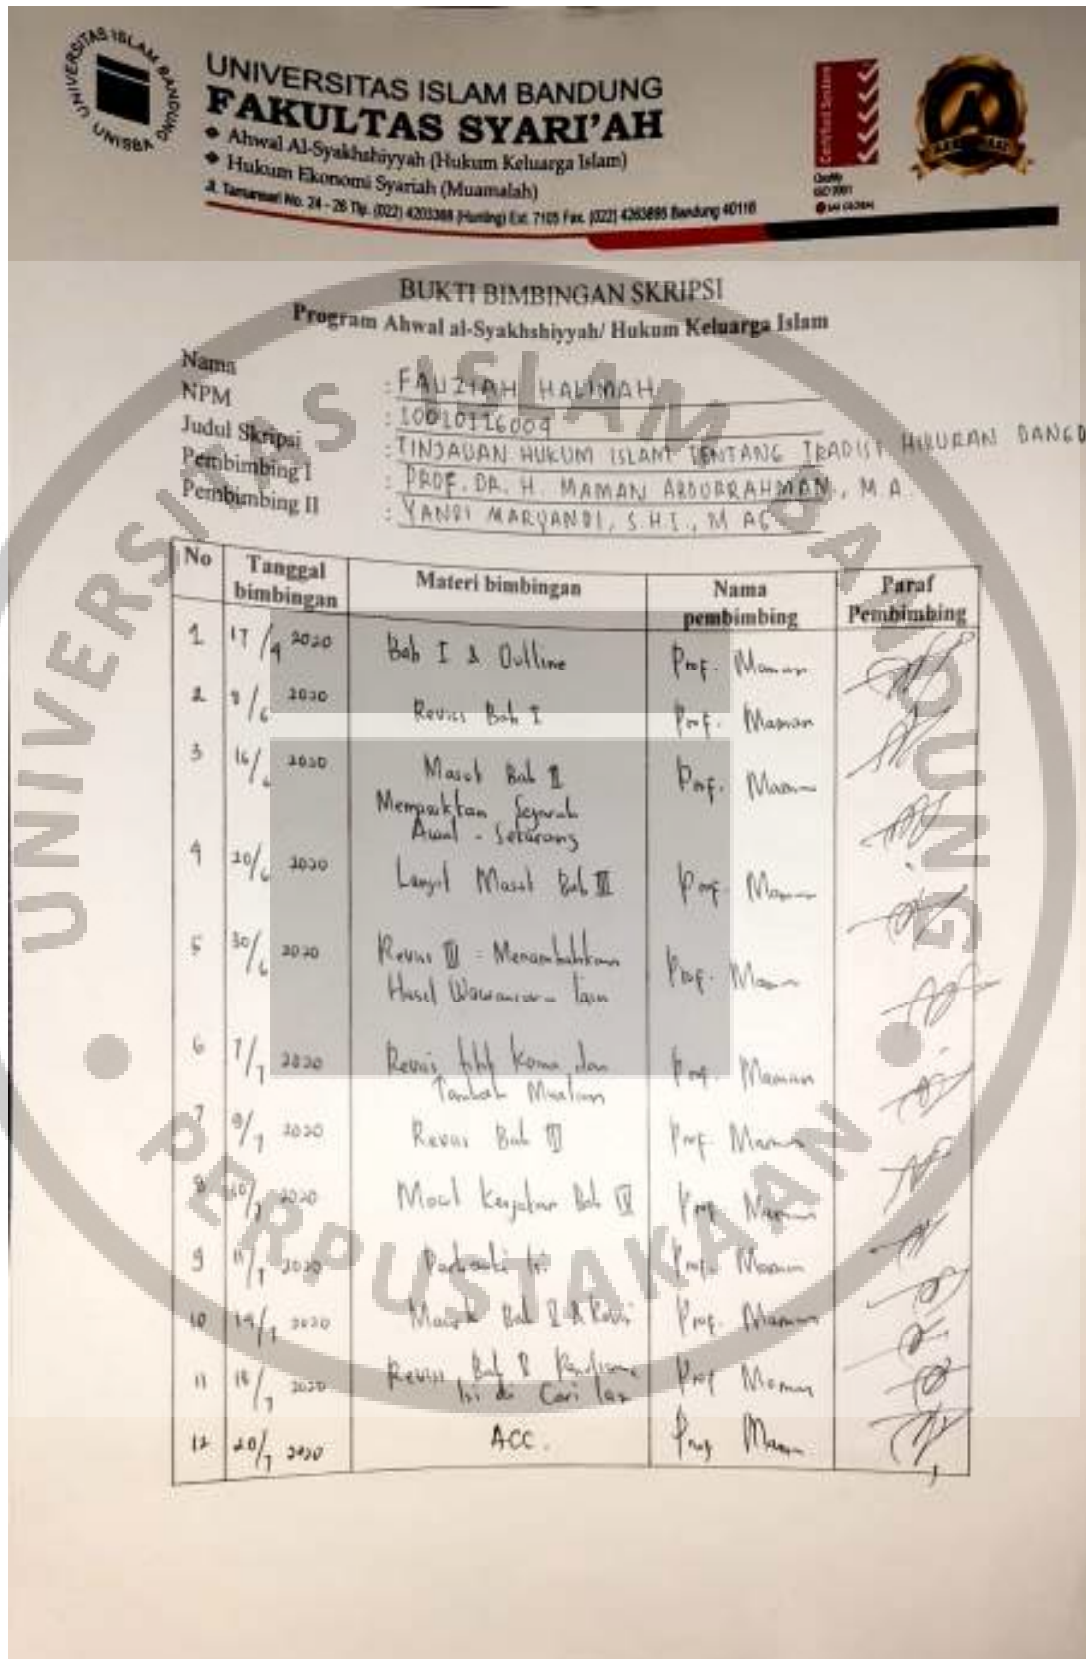 UNIVERSITAS ISLAM BANDUNG
UNISBA
UNIVERSITAS ISLAM BANDUNG
FAKULTAS SYARI'AH
Ahwal Al-Syakhshiyyah (Hukum Keluarga Islam)
Hukum Ekonomi Syariah (Muamalah)
Jl. Tamansari No. 24 - 26 Tlp. (022) 4203368 (Hunting) Ext. 7105 Fax. (022) 4263895 Bandung 40116
Certified System
Quality
ISO 9001
SAI GLOBAL
BUKTI BIMBINGAN SKRIPSI
Program Ahwal al-Syakhshiyyah/ Hukum Keluarga Islam
Nama : FAUZIAH HALIMAH
NPM : 10010116009
Judul Skripsi : TINJAUAN HUKUM ISLAM TENTANG TRADISI HIBURAN DANGD
Pembimbing I : PROF. DR. H. MAMAN ABDURRAHMAN, M.A
Pembimbing II : YANDI MARYANDI, S.H.I., M AG
No Tanggal bimbingan Materi bimbingan Nama pembimbing Paraf Pembimbing
1 17/4 2020 Bab I & Outline Prof. Maman
2 8/6 2020 Revisi Bab I Prof. Maman
3 16/6 2020 Masuk Bab II Prof. Maman
Sejarah
Awal - Sekarang
4 20/6 2020 Lanjut Masuk Bab III Prof. Maman
5 30/6 2020 Revisi III = Menambahkan Prof. Maman
Hasil Wawancara lain
6 7/7 2020 Revisi titik koma dan Prof. Maman
Tambah
7 9/7 2020 Revisi Bab III Prof. Maman
8 10/7 2020 Bab IV Prof. Maman
9 11/7 2020 Perbaiki Isi Prof. Maman
10 14/7 2020 Masuk Bab & Revisi Prof. Maman
11 18/7 2020 Revisi Bab Prof Maman
Isi di Cari
12 20/7 2020 ACC. Prof Maman
UNIVERSITAS ISLAM BANDUNG
PERPUSTAKAAN